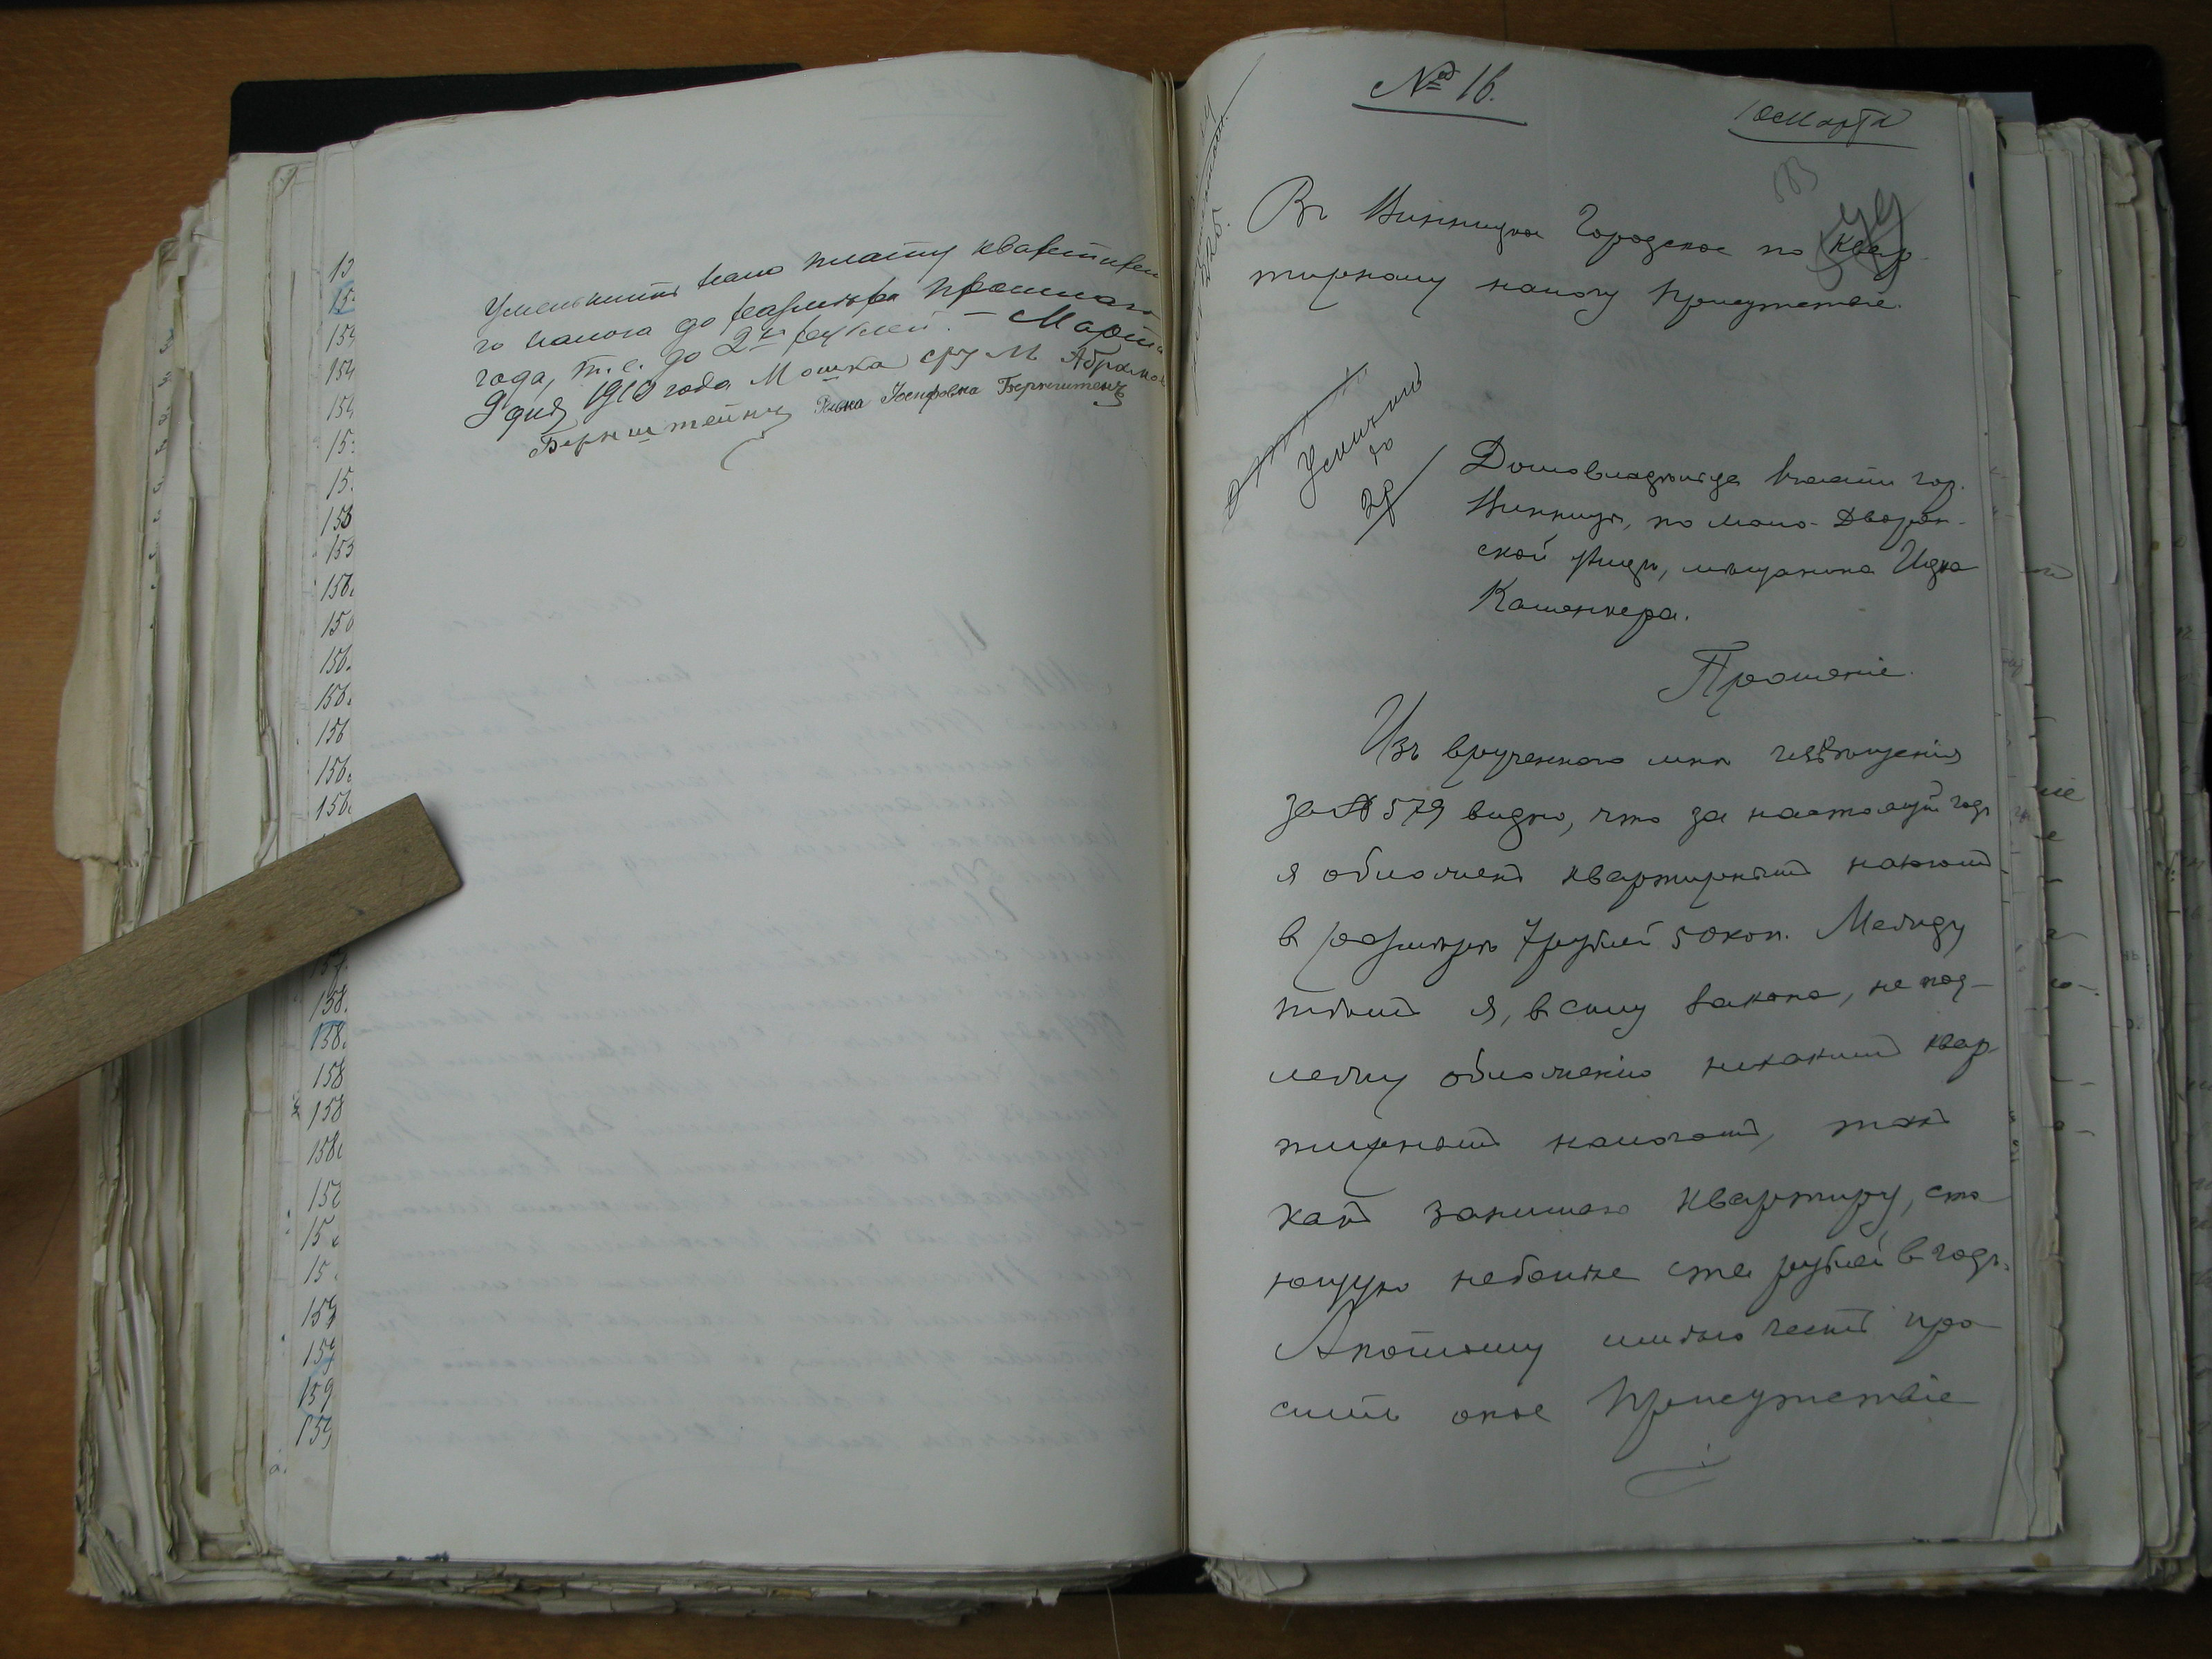 Уменьшить намъ плату квартирна
го налога до размѣра прошлаго
года, т. е. до 2хъ рублей. – Марта
9 дня 1910 года Мошка Срулъ Абрамов
Бернштейнъ Ривка Іосифовна Бернштейнъ
13
15
154
154
154
15
15
156
153
156
156
156
156
156
156
156
158
158
158
158
158
15
15
15
159
159
159
159
№ 16.
10 Марта
583
Въ Винницкое Городское по Квар-
тирному налогу Присутствіе.
Уменьшить
до
2р
Домовладѣльца въ гор.
Винницѣ, по Мало-Дворян-
ской улицѣ, мѣщанина Ицка
Кашенкера.
Прошеніе.
Изъ врученнаго мнѣ извѣщенія
за № 579 видно, что за настоящій годъ
я обложенъ квартирнымъ налогомъ
въ размѣрѣ 7 рублей 50 коп. Между
тѣмъ я, въ силу закона, не под-
лежу обложенію никакимъ квар-
тирнымъ налогомъ, такъ
какъ занимаю квартиру, сто-
ющую не больше ста рублей въ годъ.
А потому имѣю честь про-
сить оное Присутствіе